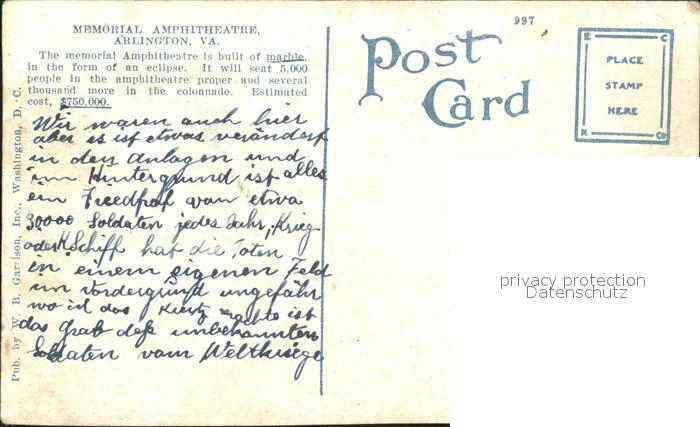 MEMORIAL AMPHITHEATRE,
ARLINGTON, VA.
The memorial Amphitheatre is built of marble,
in the form of an eclipse. It will seat 5,000
people in the amphitheatre proper and several
thousand more in the colonnade. Estimated
cost, $750,000.
Wir waren auch hier
aber es ist etwas verändert
in den Anlagen und
im Hintergrund ist alles
ein Friedhof von etwa
30000 Soldaten jedes Jahr, Krieg
oder K.Schiff hat die Toten
in einem eigenen Feld
im Vordergrund ungefähr
wo ich das Kreutz machte ist
das Grab des unbekannten
Soldaten vom Weltkriege
Pub. by W. B. Garrison, Inc., Washington, D. C.
997
Post
Card
E C
PLACE
STAMP
HERE
K Co
privacy protection
Datenschutz